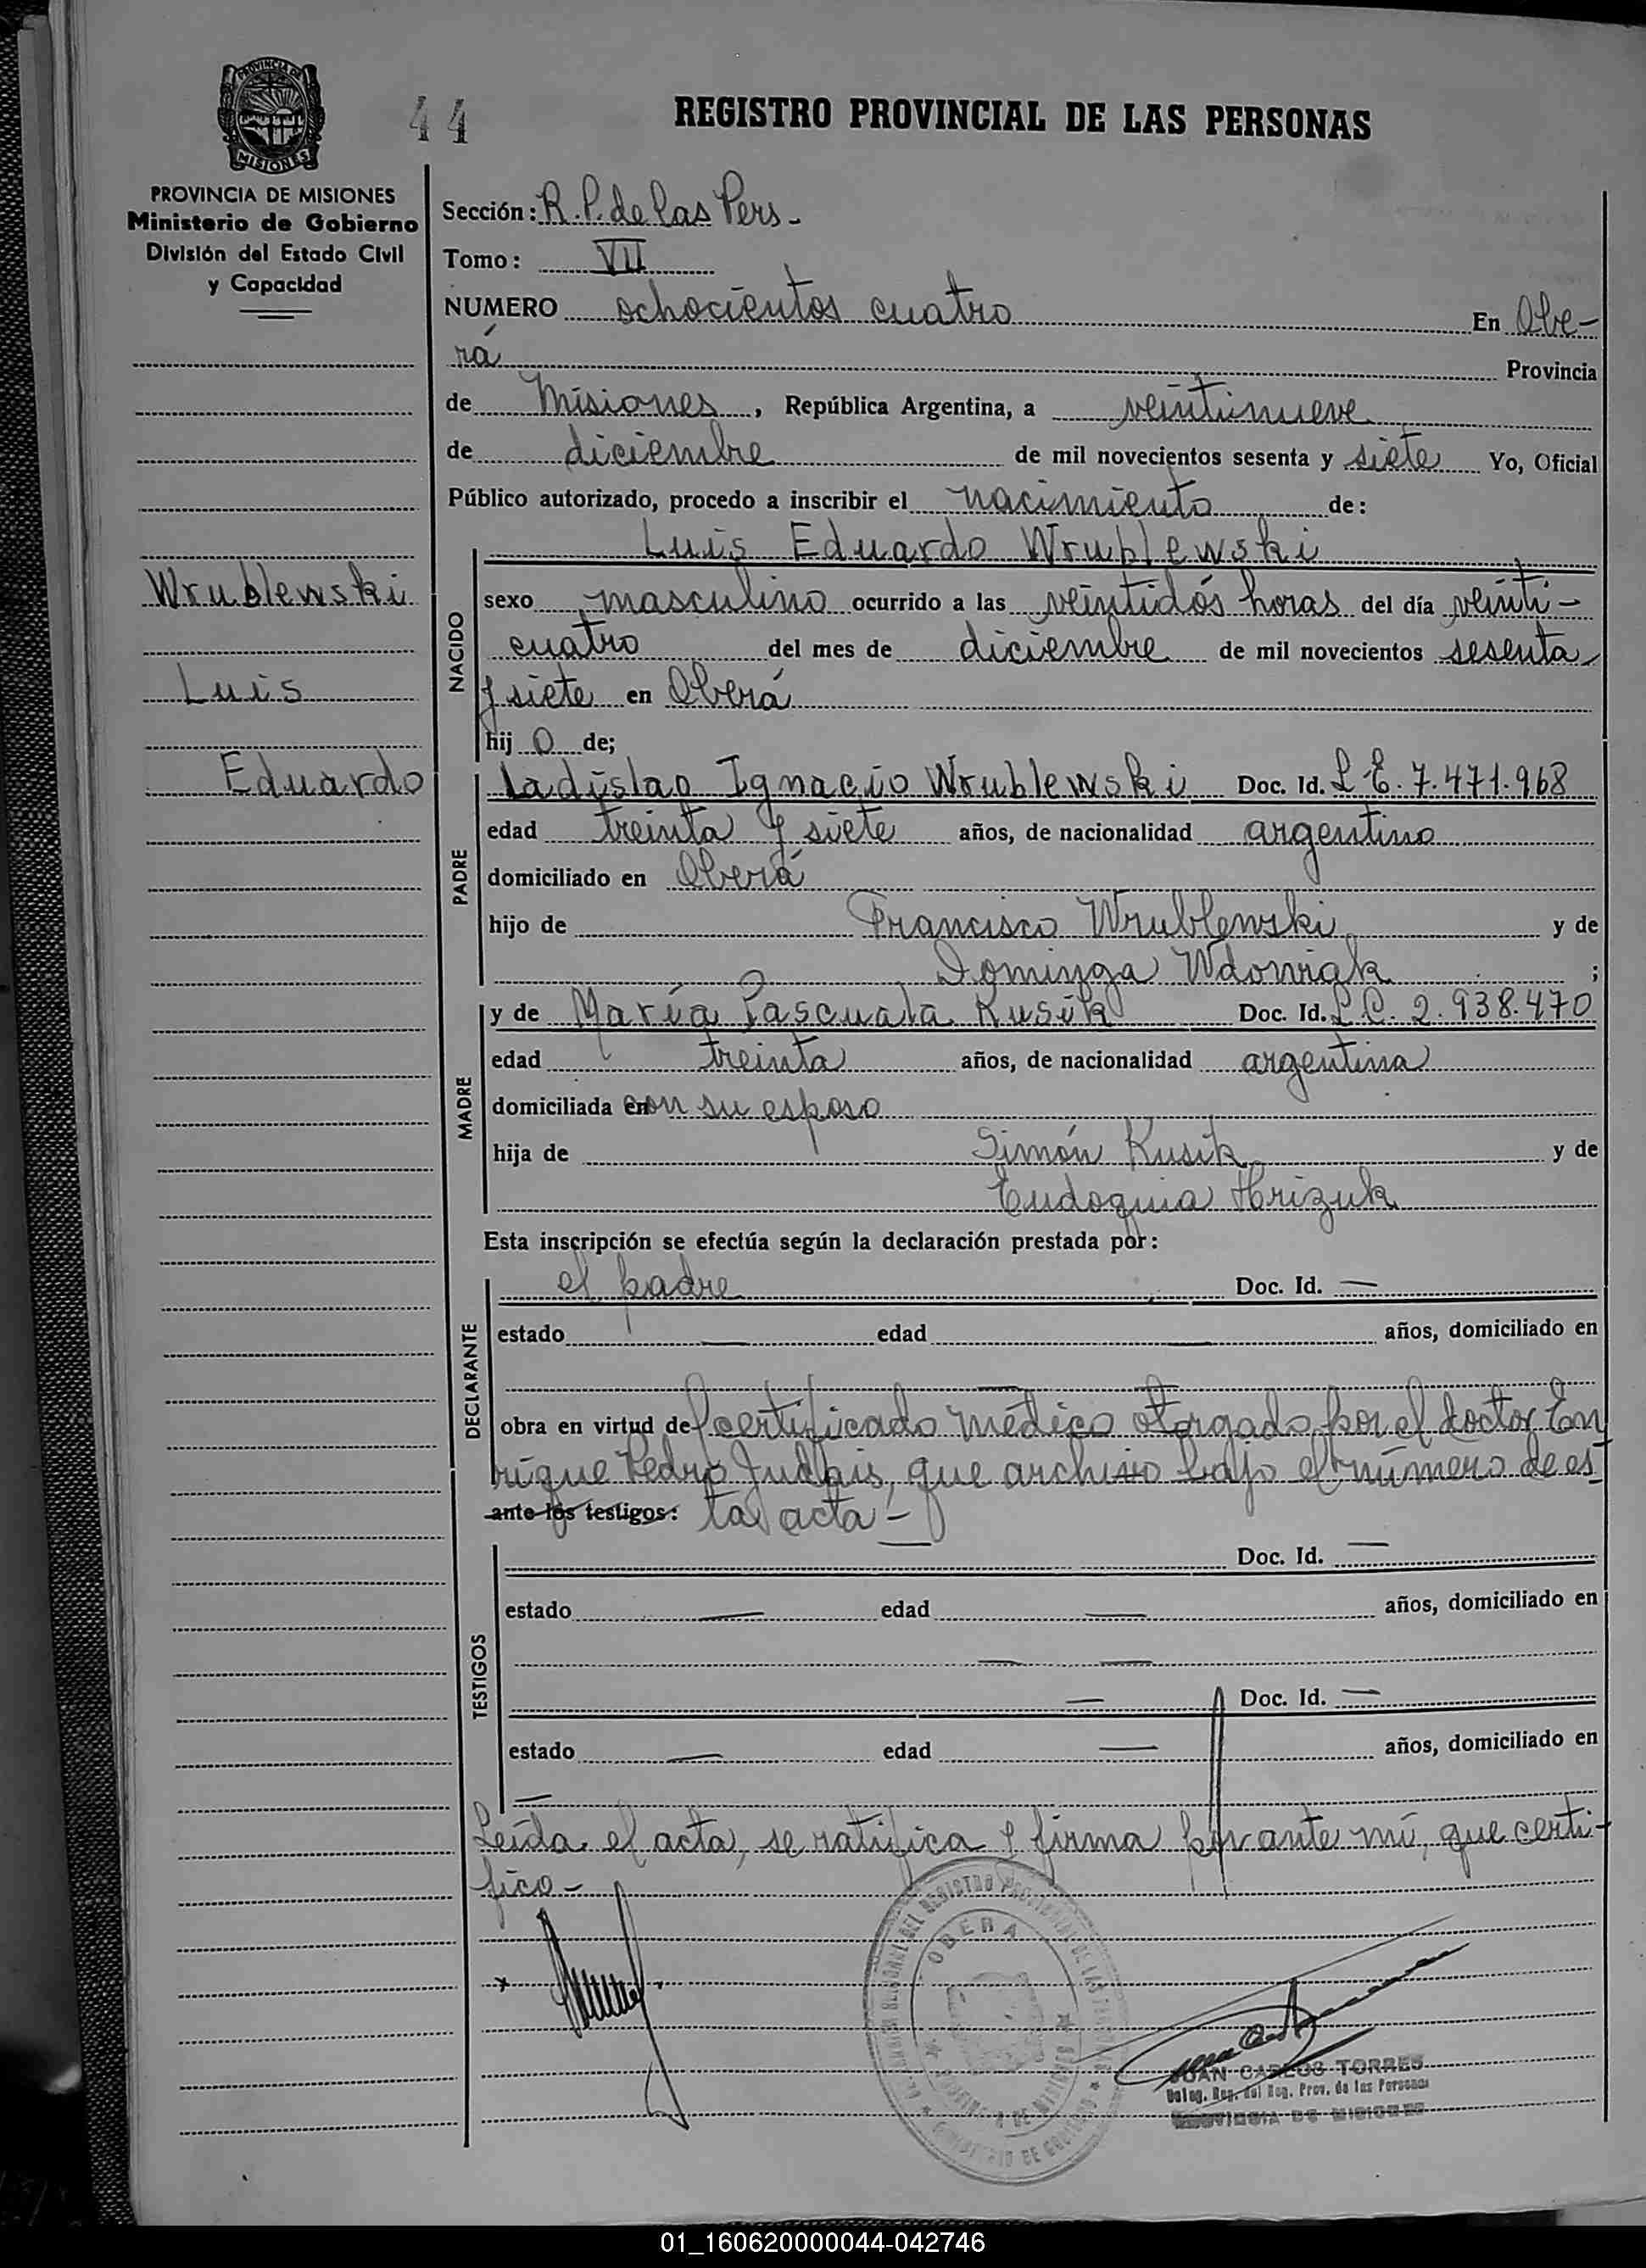 PROVINCIA DE
MISIONES
44
REGISTRO PROVINCIAL DE LAS PERSONAS
PROVINCIA DE MISIONES
Ministerio de Gobierno
División del Estado Civil
y Capacidad
Sección: R.P. de las Pers-
Tomo: VII
NUMERO ochocientos cuatro En Obe-
rá Provincia
de Misiones, República Argentina, a veintinueve
de diciembre de mil novecientos sesenta y siete Yo, Oficial
Público autorizado, procedo a inscribir el nacimiento de:
Wrublewski
Luis
Eduardo
NACIDO
Luis Eduardo Wrublewski
sexo masculino ocurrido a las veintidós horas del día veinti-
cuatro del mes de diciembre de mil novecientos sesenta
y siete en Oberá
hij o de;
PADRE
Ladislao Ignacio Wrublewski Doc. Id. L.E. 7.471.968
edad treinta y siete años, de nacionalidad argentino
domiciliado en Oberá
hijo de Francisco Wrublewski y de
Dominga Wdowiak ;
MADRE
y de María Pascuala Kusik Doc. Id. L.C. 2.938.470
edad treinta años, de nacionalidad argentina
domiciliada en con su esposo
hija de Simón Kusik y de
Eudoquia Hrizuk
Esta inscripción se efectúa según la declaración prestada por:
DECLARANTE
el padre Doc. Id. —
estado — edad — años, domiciliado en
—
obra en virtud del certificado médico otorgado por el doctor En
rique Pedro que archivo bajo el número de es
ante los testigos: ta acta -
TESTIGOS
— Doc. Id. —
estado — edad — años, domiciliado en
— —
— Doc. Id. —
estado — edad — años, domiciliado en
—
Leída el acta, se ratifica y firma por ante mí, que certi-
fico -
OBERA
JUAN CARLOS TORRES
Deleg. Reg. del Reg. Prov. de las Personas
PROVINCIA DE MISIONES
01_160620000044-042746